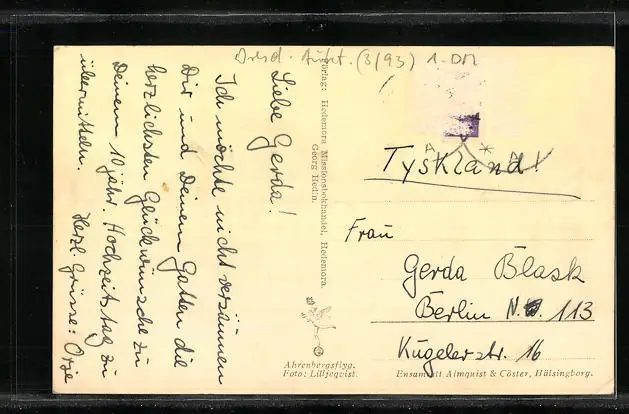 Dresd. Aukt. (3/93) 1.-DM
Liebe Gerda!
Ich möchte nicht versäumen
Dir und Deinem Gatten die
herzlichsten Glückwünsche zu
Deinem 10 jähr. Hochzeitstag zu
übermitteln.
Herzl. Grüsse:
Förlag: Hedemora Missionsbokhandel, Hedemora.
Georg Hedin.
Ahrenbergsflyg.
Foto: Lilljeqvist.
Tyskland!
Frau
Gerda Blask
Berlin N. 113
Kugelerstr. 16
Ensamrätt Almquist & Cöster, Hälsingborg.